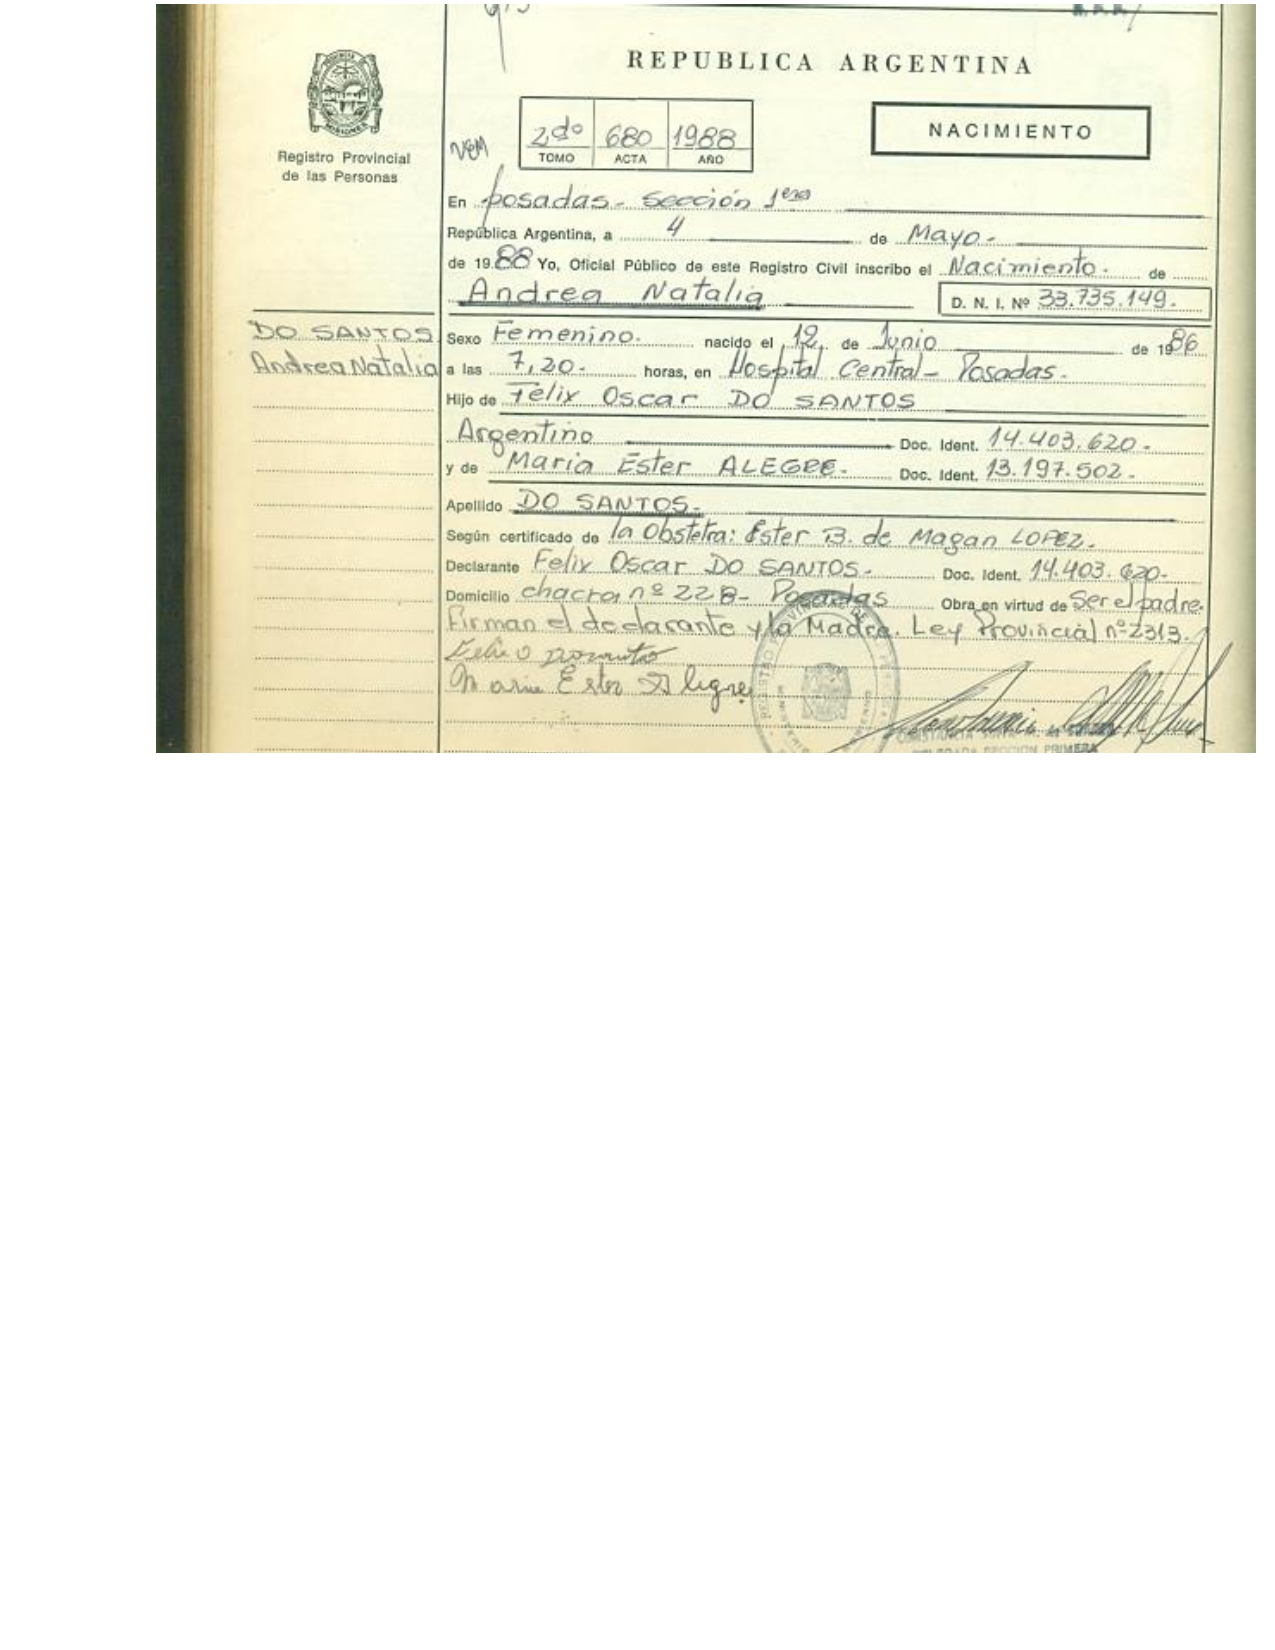 REPUBLICA ARGENTINA
Registro Provincial
de las Personas
NACIMIENTO
2do 680 1988
TOMO ACTA AÑO
En posadas - Sección 1era
República Argentina, a 4 de Mayo -
de 1988 Yo, Oficial Público de este Registro Civil inscribo el Nacimiento. de
Andrea Natalia D. N. I. Nº 33.735.149.
DO SANTOS
Andrea Natalia
Sexo Femenino. nacido el 12 de Junio de 1986
a las 7,20. horas, en Hospital Central - Posadas.
Hijo de Felix Oscar DO SANTOS
Argentino Doc. Ident. 14.403.620.
y de Maria Ester ALEGRE. Doc. Ident. 13.197.502.
Apellido DO SANTOS.
Según certificado de la Obstetra: Ester B. de Magan LOPEZ.
Declarante Felix Oscar DO SANTOS. Doc. Ident. 14.403.620.
Domicilio chacra nº 228 - Posadas Obra en virtud de Ser el padre.
Firman el declarante y la Madre. Ley Provincial nº 2313.
Maria Ester Alegre
SECCION PRIMERA